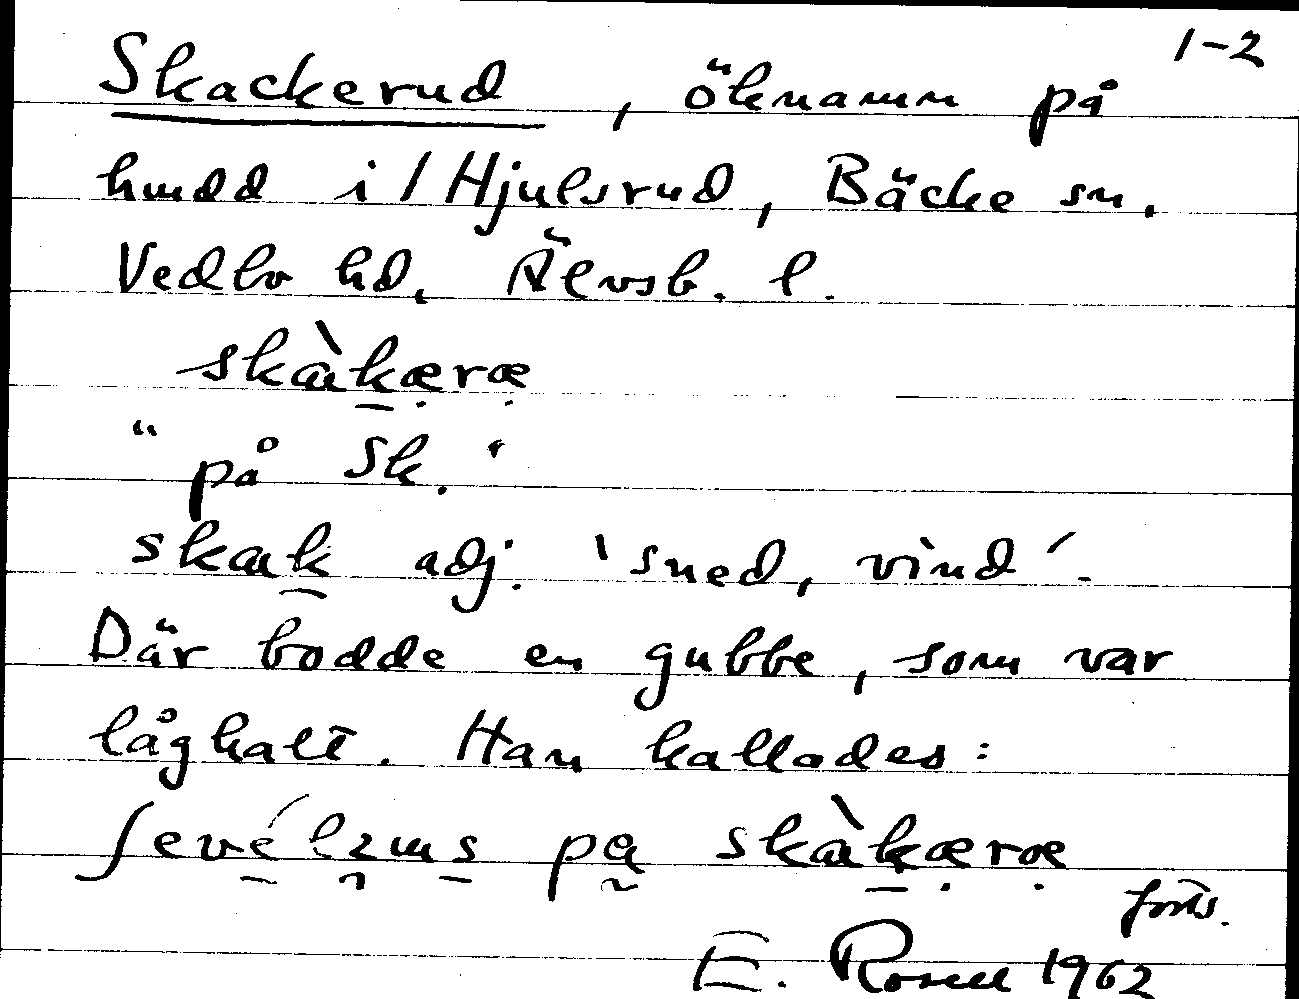 1-2
Skackerud, öknamn på
hmdd i 1 Hjulsrud, Bäcke sn.
Vedbo hd, Älvsb. l.
skàkæræ
"på Sk."
skak adj. 'sned, vind'.
Där bodde en gubbe, som var
låghalt. Han kallades:
ʃevélzms pa skàkæræ
forts.
E. Rosell 1962